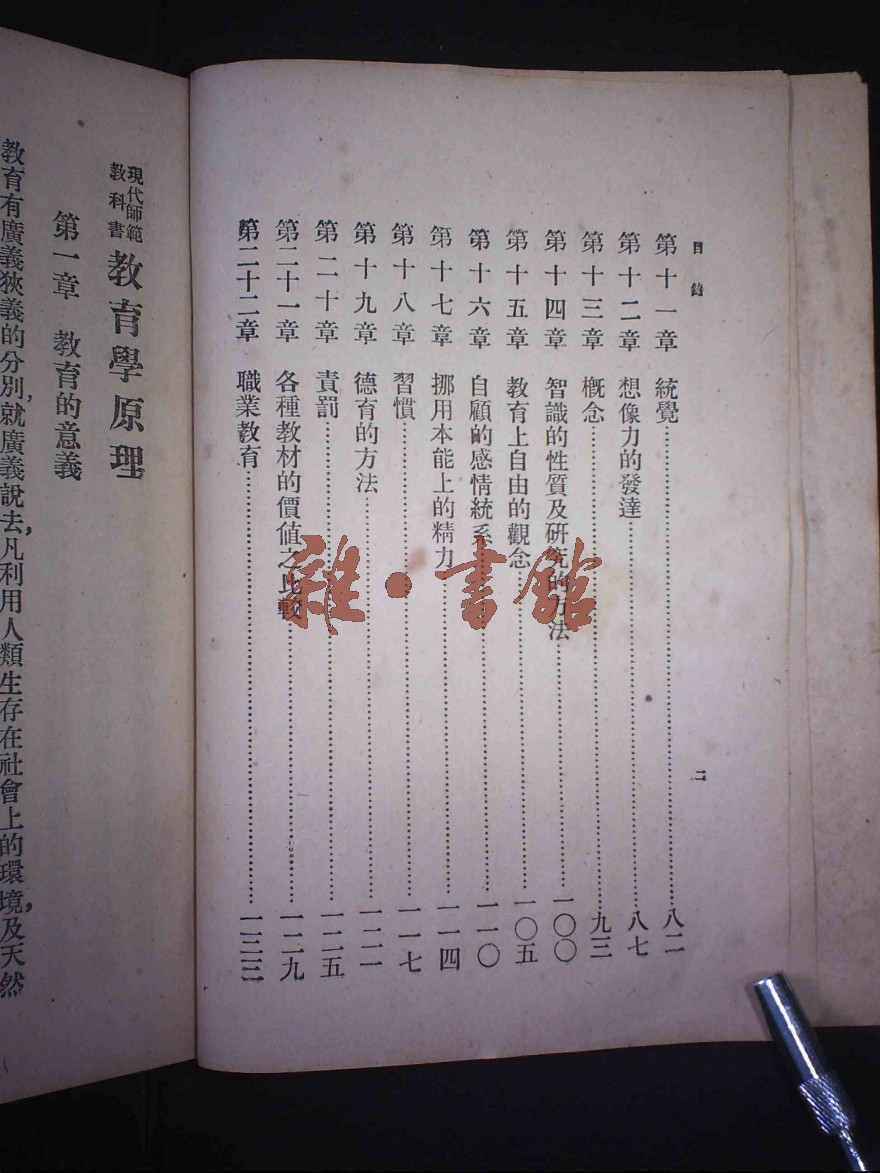 目錄 二
第十一章 統覺……八二
第十二章 想像力的發達……八七
第十三章 概念……九三
第十四章 智識的性質及研究的方法……一〇〇
第十五章 教育上自由的觀念……一〇五
第十六章 自顧的感情統系……一一〇
第十七章 挪用本能上的精力……一一四
第十八章 習慣……一一七
第十九章 德育的方法……一二一
第二十章 責罰……一二五
第二十一章 各種教材的價值之比較……一二九
第二十二章 職業教育……一三三
現代師範
教科書
教育學原理
第一章 教育的意義
教育有廣義狹義的分別,就廣義說去,凡利用人類生存在社會上的環境,及天然
雜·書館